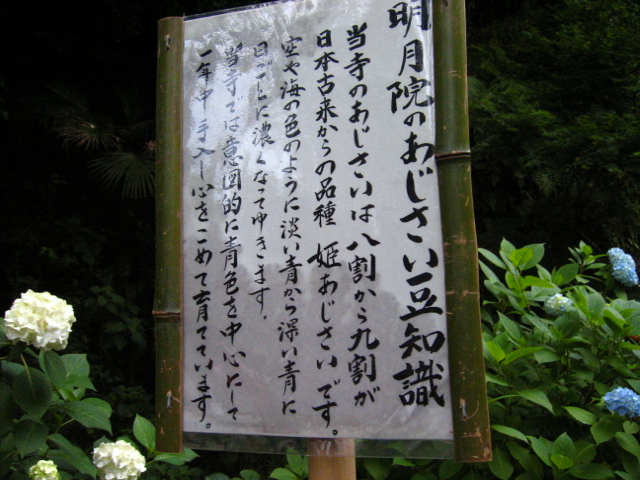 明月院のあじさい豆知識
当寺のあじさいは八割から九割が
日本古来からの品種 姫あじさいです。
空や海の色のように淡い青から深い青に
日ごとに濃くなってゆきます。
当寺では意図的に青色を中心にして
一年中手入し心をこめて育てています。